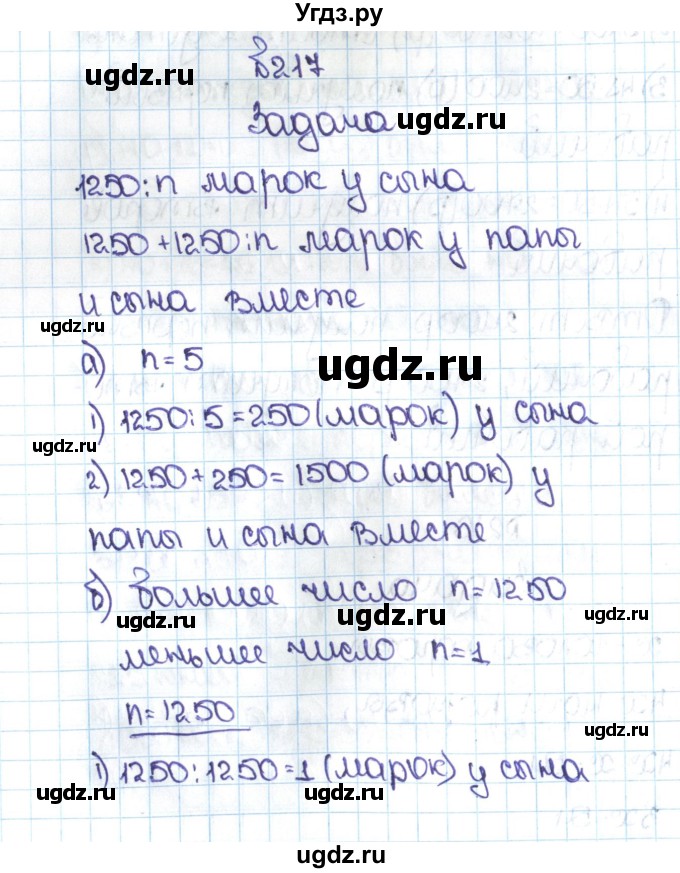 Угдз.ру
ugdz.ru В217
Задача ugdz.ru
1250:n марок у сына
1250+1250:n марок у папы
и сына вместе
ugdz.ru
а) n=5 ugdz.ru
1) 1250:5=250 (марок) у сына
ugdz.ru
2) 1250+250=1500 (марок) у
папы и сына вместе
б) большее число n=1250
ugdz.ru ugdz.ru
меньшее число n=1
n=1250
1) 1250:1250=1 (марок) у сына
ugdz.ru ugdz.ru
ugdz.ru